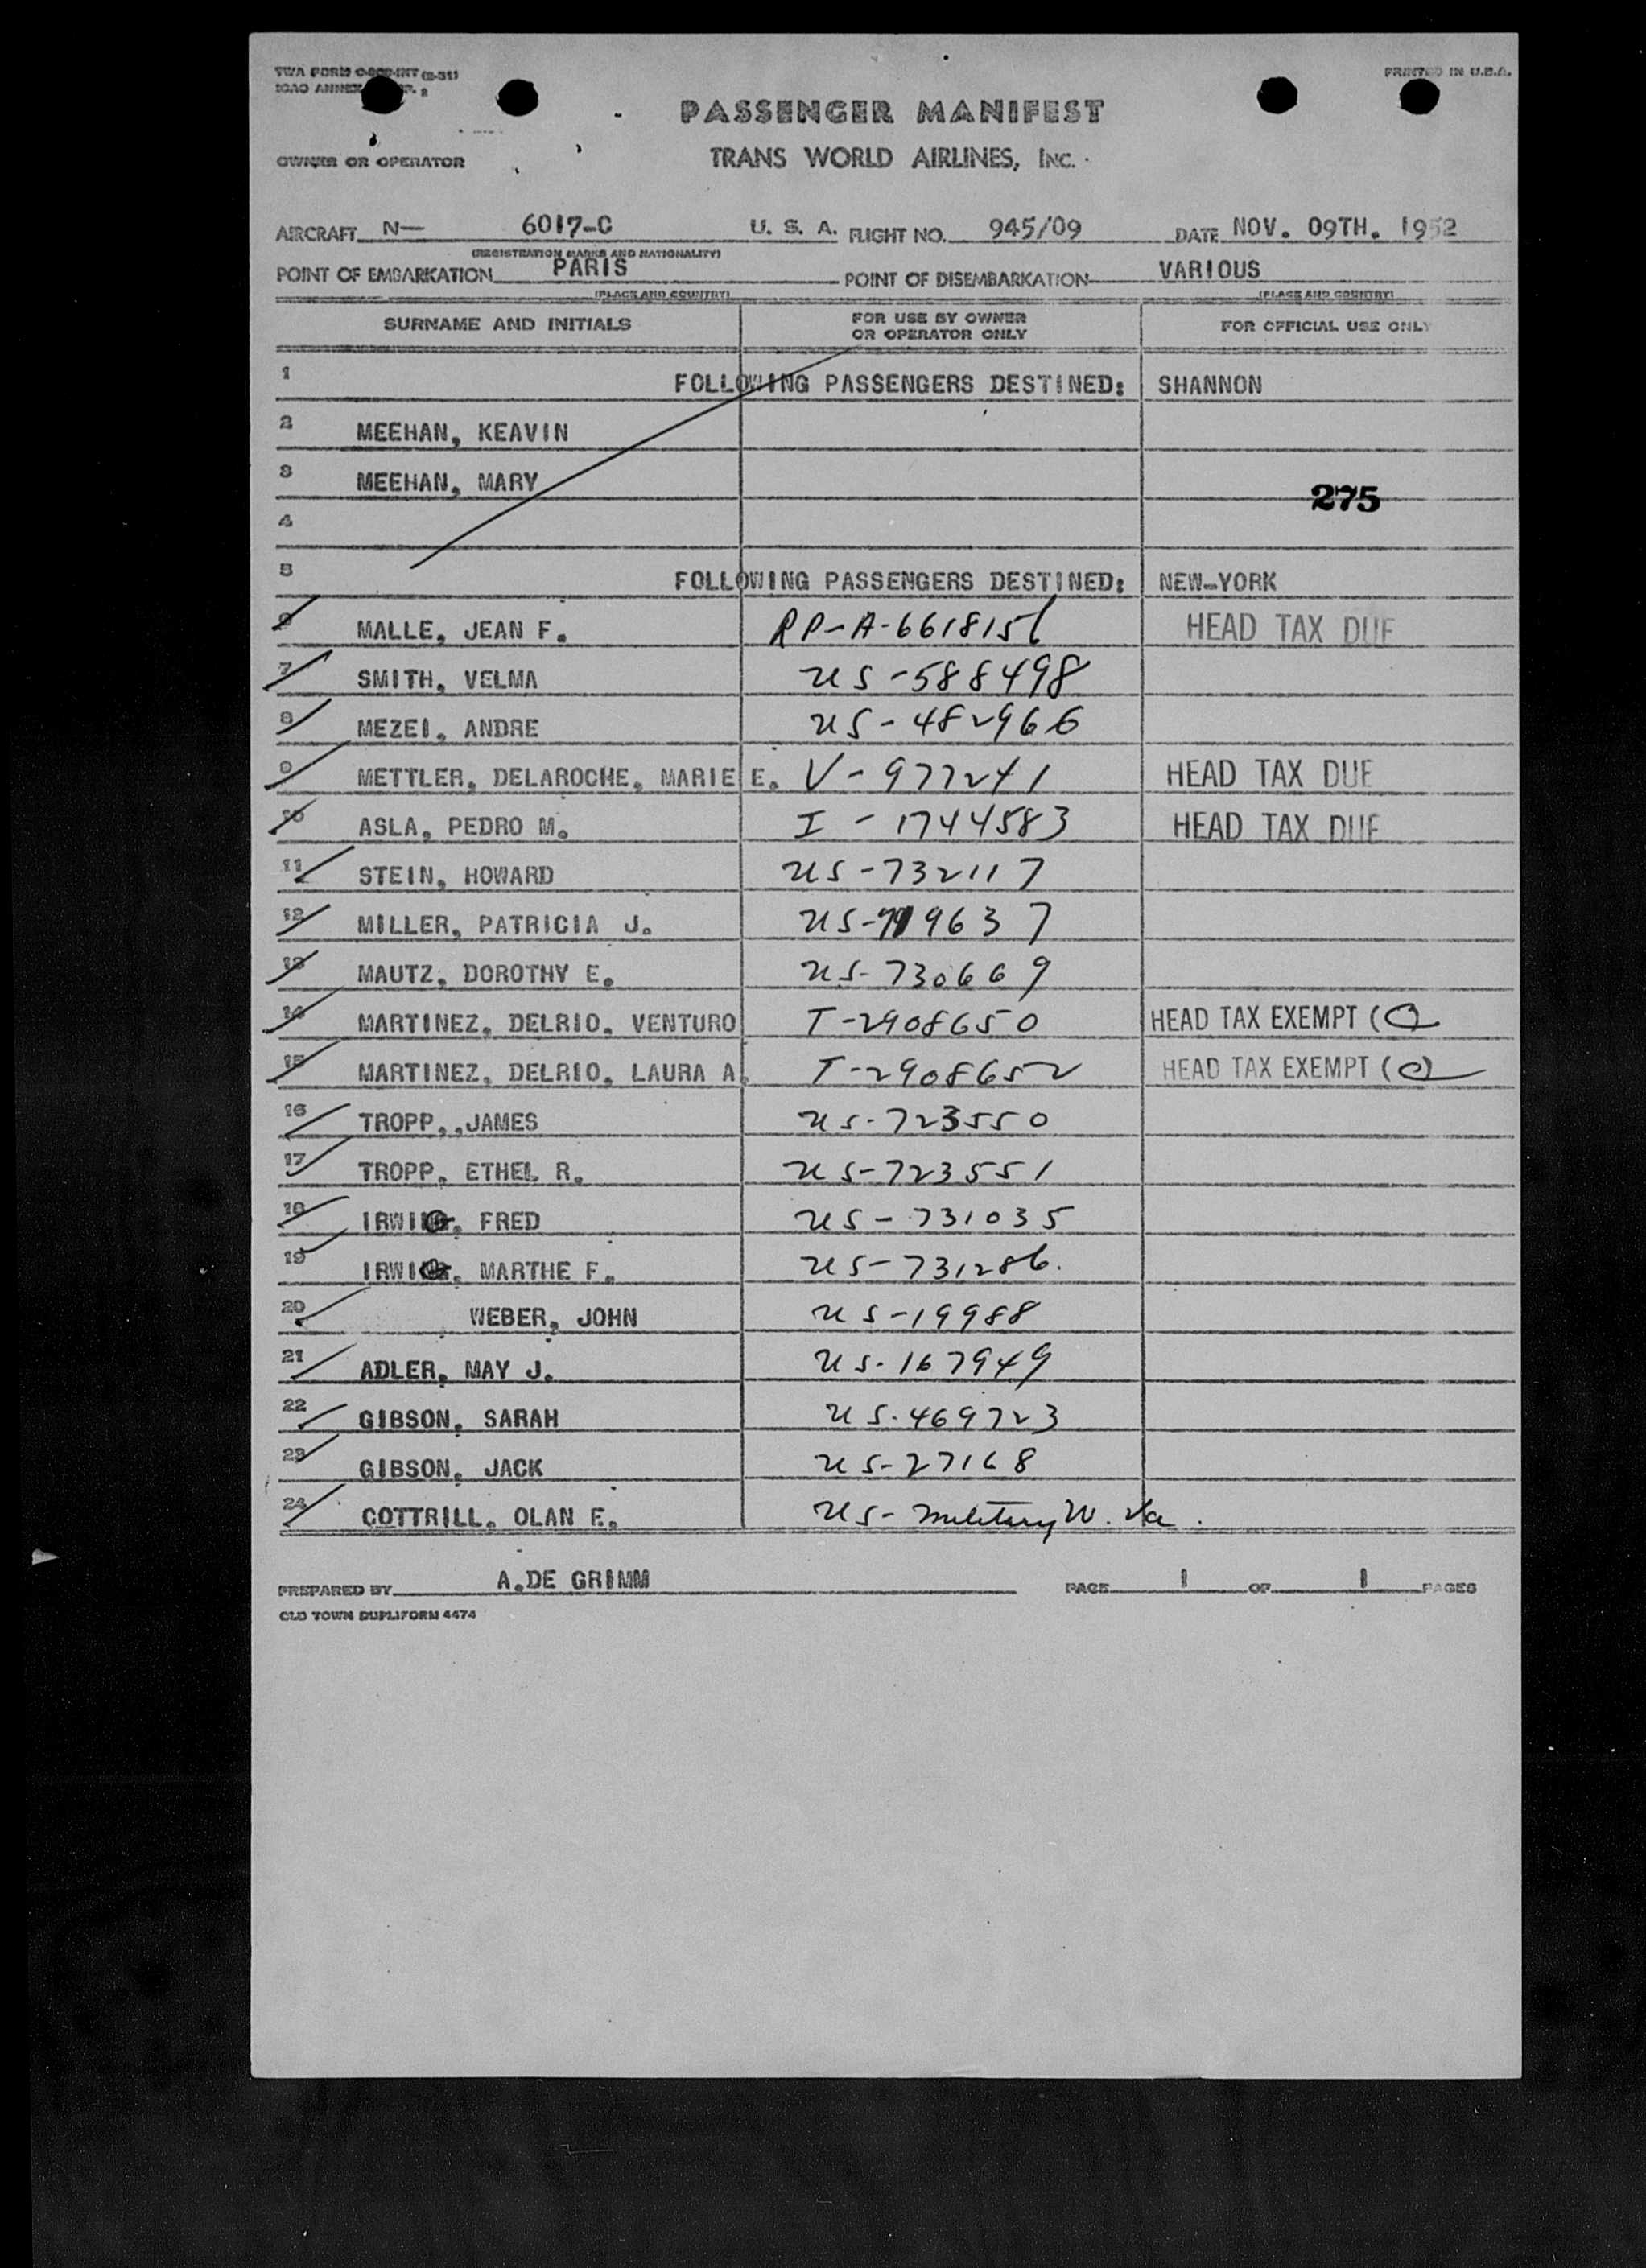 TWA FORM (2-51) PRINTED IN U.S.A.
ICAO ANNEX
PASSENGER MANIFEST
OWNER OR OPERATOR TRANS WORLD AIRLINES, INC.
AIRCRAFT N— 6017-C U. S. A. FLIGHT NO. 945/09 DATE NOV. 09TH. 1952
(REGISTRATION MARKS AND NATIONALITY)
POINT OF EMBARKATION PARIS POINT OF DISEMBARKATION VARIOUS
(PLACE AND COUNTRY) (PLACE AND COUNTRY)
SURNAME AND INITIALS FOR USE BY OWNER OR OPERATOR ONLY FOR OFFICIAL USE ONLY
1 FOLLOWING PASSENGERS DESTINED: SHANNON
2 MEEHAN, KEAVIN
3 MEEHAN, MARY 275
4
5 FOLLOWING PASSENGERS DESTINED: NEW-YORK
6 MALLE, JEAN F. RP-A-6618156 HEAD TAX DUE
7 SMITH, VELMA US-588498
8 MEZEI, ANDRE US-482966
9 METTLER, DELAROCHE, MARIE E. V-977241 HEAD TAX DUE
10 ASLA, PEDRO M. I-1744583 HEAD TAX DUE
11 STEIN, HOWARD US-732117
12 MILLER, PATRICIA J. US-719637
13 MAUTZ, DOROTHY E. US-730669
14 MARTINEZ, DELRIO, VENTURO T-2908650 HEAD TAX EXEMPT (
15 MARTINEZ, DELRIO, LAURA A. T-2908652 HEAD TAX EXEMPT (
16 TROPP,,JAMES US-723550
17 TROPP, ETHEL R. US-723551
18 FRED US-731035
19 MARTHE F. US-731286.
20 WEBER, JOHN US-19988
21 ADLER, MAY J. US-167949
22 GIBSON, SARAH US-469723
23 GIBSON, JACK US-27168
24 COTTRILL, OLAN E. US-Military W. Va.
PREPARED BY A.DE GRIMM PAGE 1 OF 1 PAGES
OLD TOWN DUPLIFORM 4474